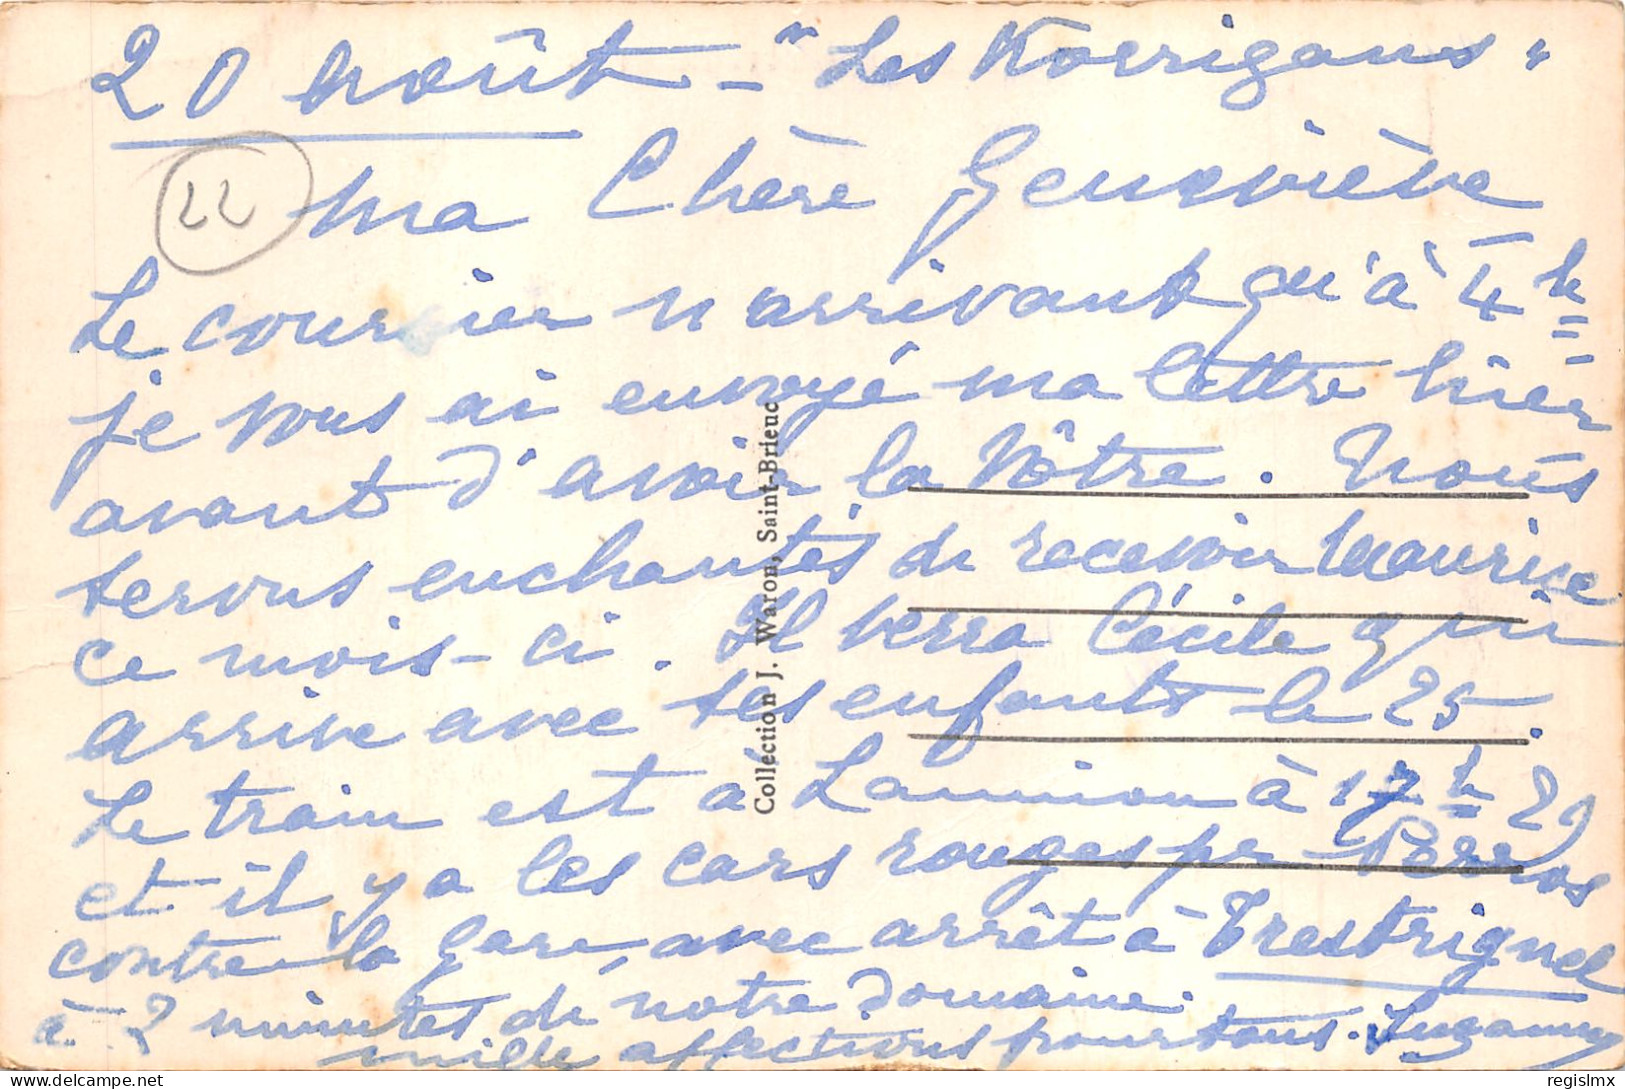 20 Août - "Les Korrigans"
22
Ma Chère Geneviève
Le courrier n'arrivant qu'à 4h
je vous ai envoyé ma lettre hier
avant d'avoir la vôtre. Nous
serons enchantés de recevoir Maurice
ce mois-ci. Il verra Cécile qui
arrive avec ses enfants le 25.
Le train est à Lannion à 17h 29
et il y a les cars rouges pr Perros
contre la gare, avec arrêt à Trestrignel
à 2 minutes de notre domaine.
mille affections pour tous. Suzanne
Collection J. Waron, Saint-Brieuc
delcampe.net
regislmx